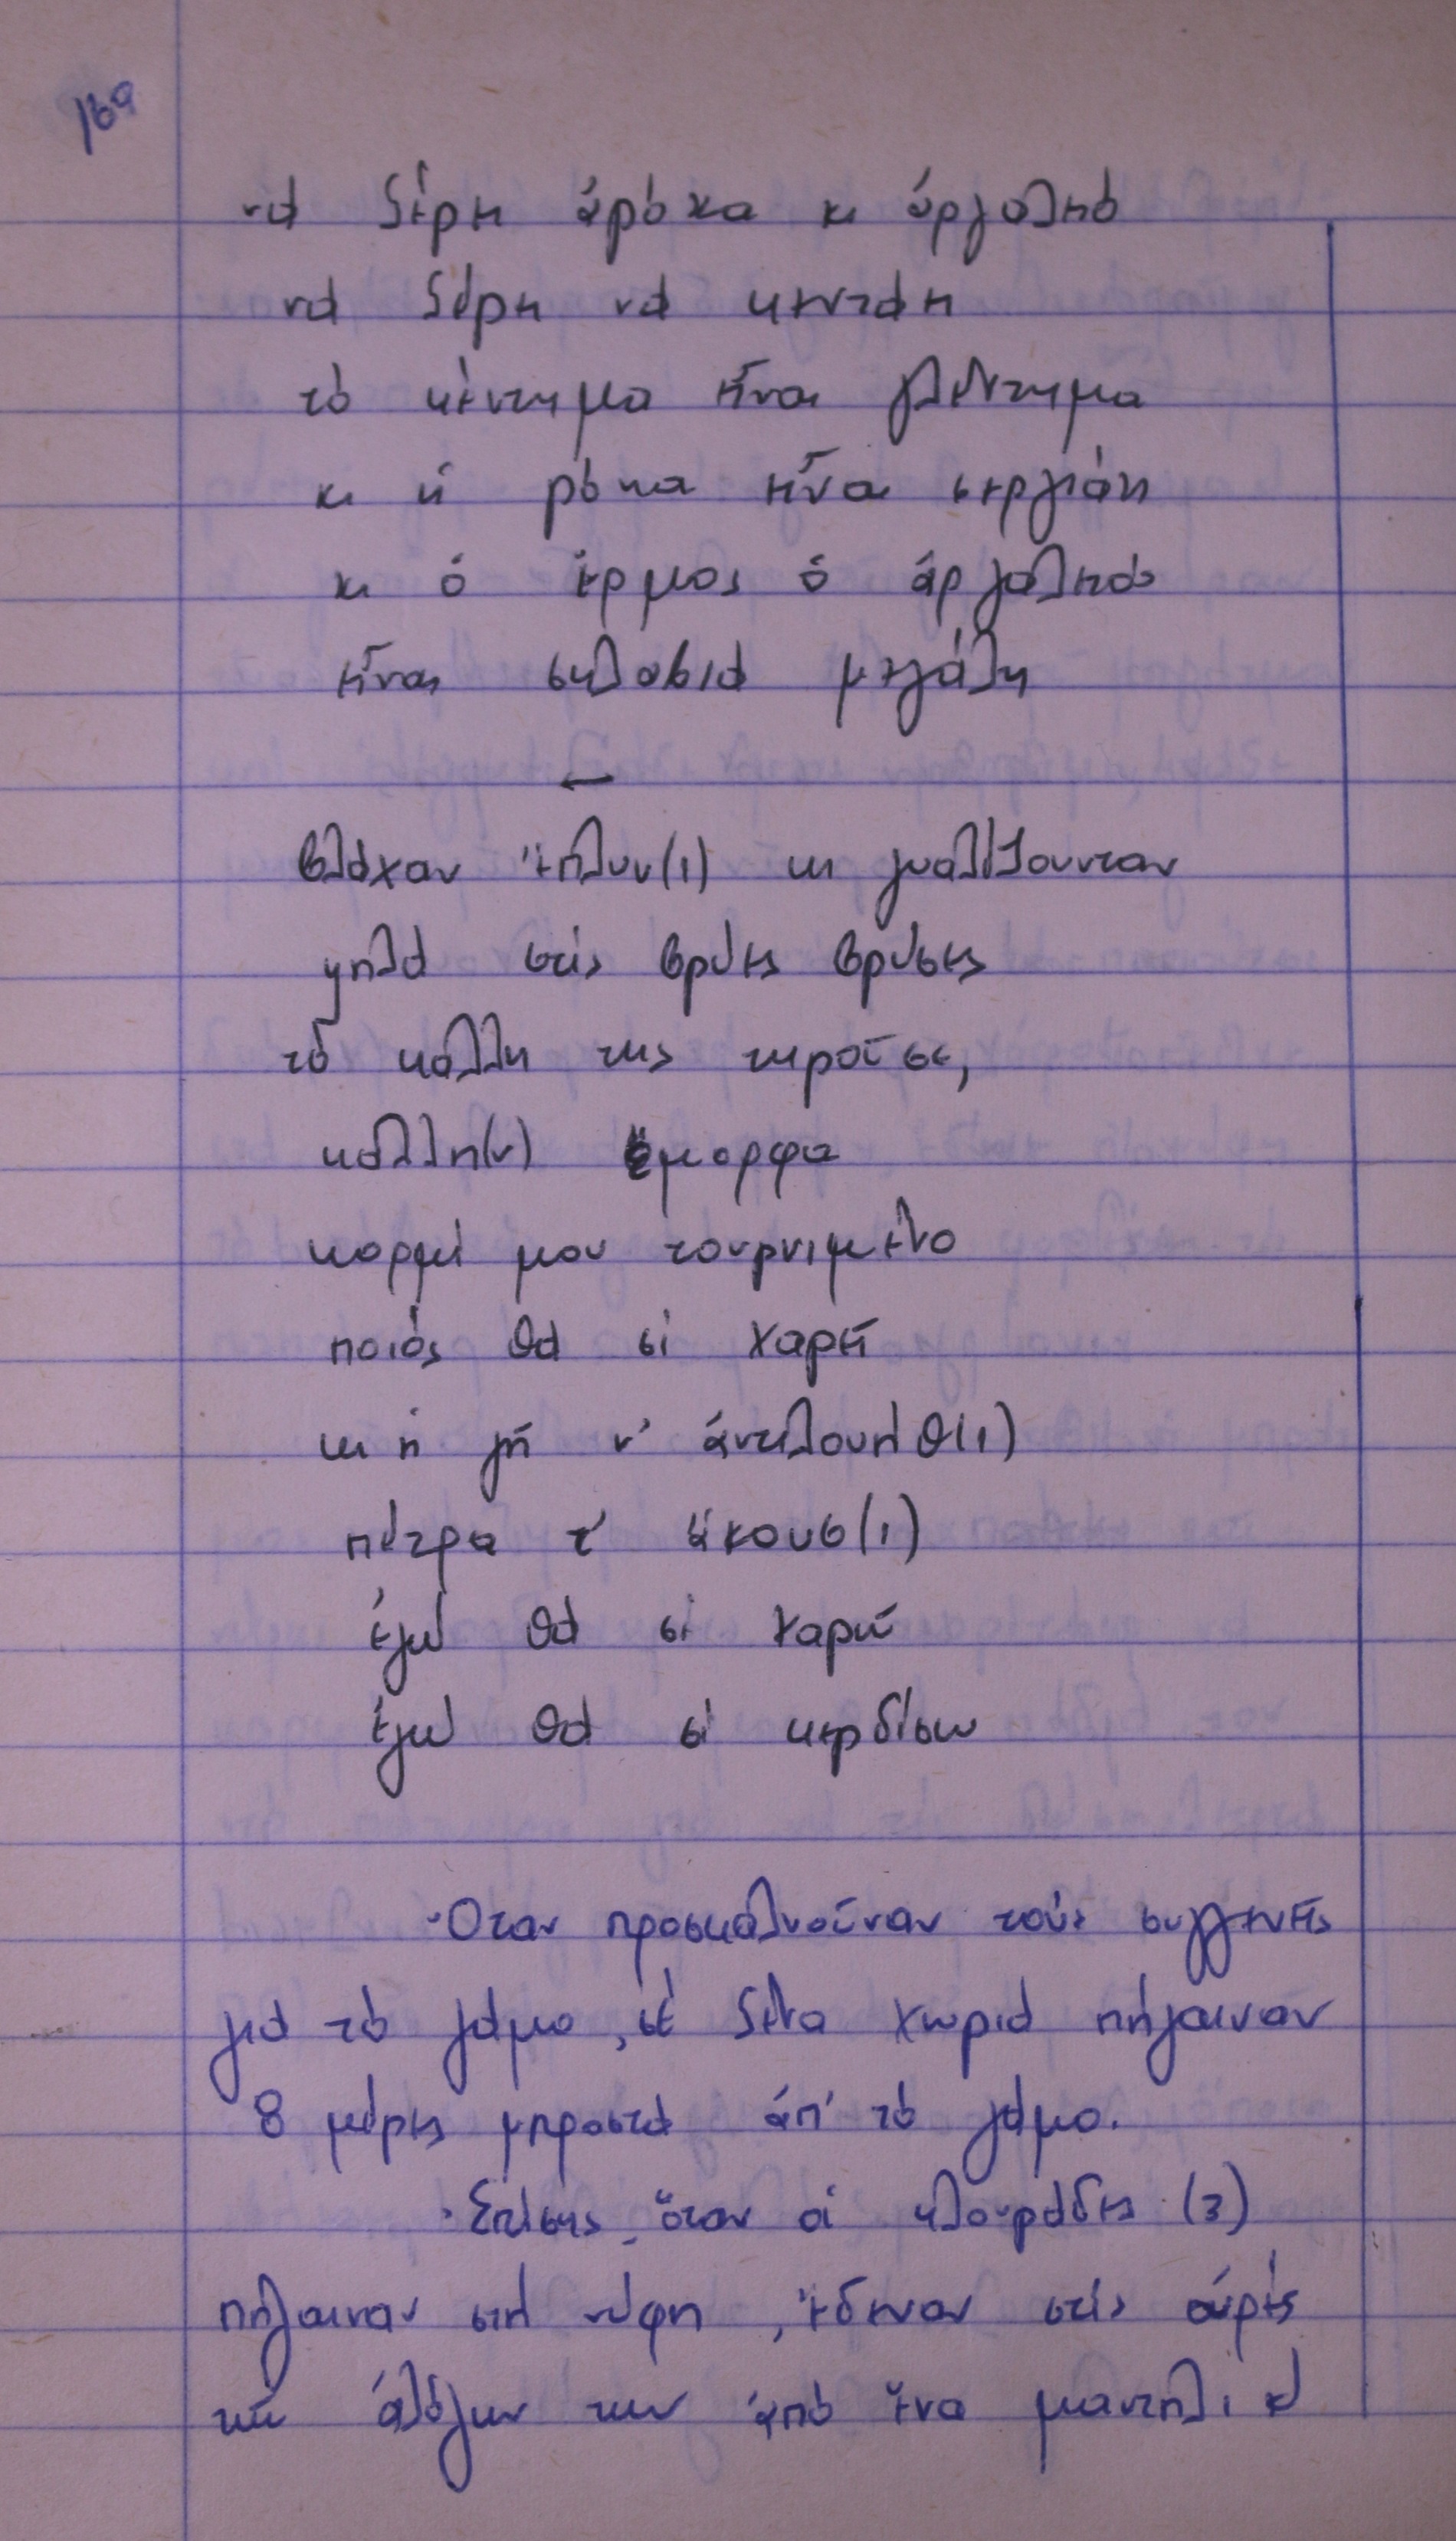 169
νά ξέρη ἀρόκα κι ἀργαλειό
νά ξέρη νά κεντάη
τό κέντημα εἶναι γλέντημα
κι ἡ ρόκα εἶναι σεργιάνι
κι ὁ ἔρμος ὁ ἀργαλειός
εἶναι σκλαβιά μεγάλη
βλάχαν ἔπλυν(ι) κι γυαλίζουνταν
ψηλά στίς βρύες βρύσες
τά κάλλη της τηροῦσε,
κάλλη(ν) ἔμορφα
κορμί μου τουρνιμένο
ποιός θά σί χαρῆ
κι ἡ γῆ ν' ἀντιλουήθ(ι)
πέτρα τ' ἄκουσ(ι)
ἐγώ θά σί χαρῶ
ἐγώ θά σί κερδίσω
Ὅταν προσκαλνοῦναν τούς συγγενεῖς
γιά τό γάμο, σέ ξένα χωριά πήγαιναν
8 μέρες μπροστά ἀπ' τό γάμο.
Ἐπίσης ὅταν οἱ κλουράδες (3)
πήγαιναν στή νύφη, ἔδεναν στίς οὐρές
τῶν ἀλόγων των ἀπό ἕνα μαντήλι κ